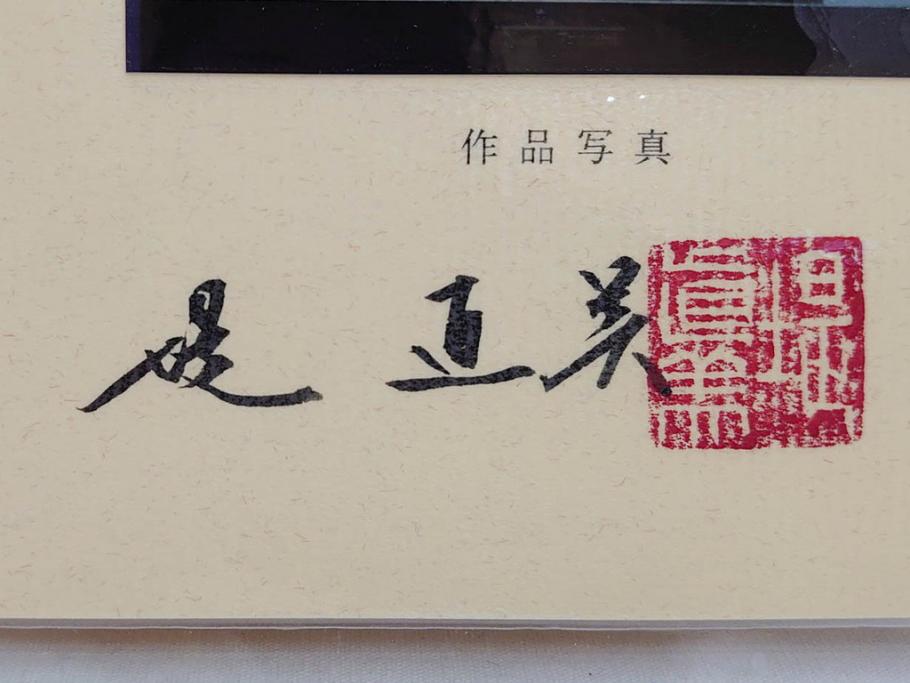 作品写真
堤 直美